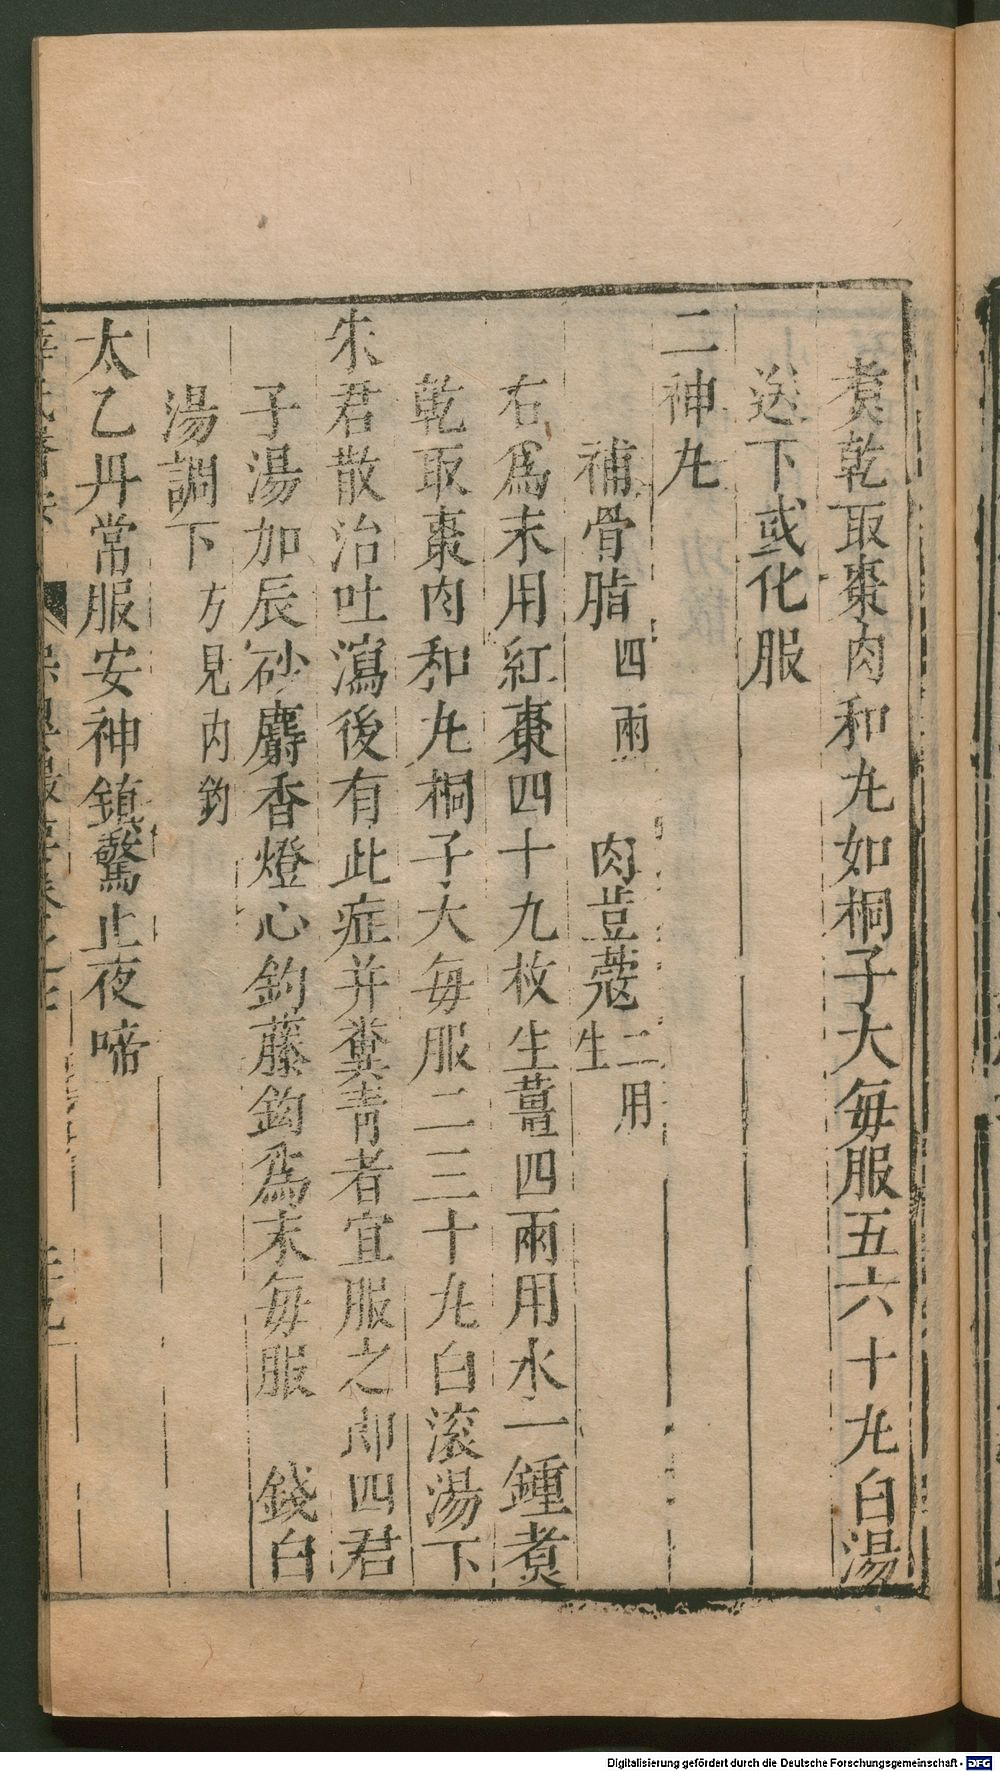 煑乾取棗肉和丸如桐子大每服五六十丸白湯
送下或化服
二神丸
補骨脂四兩 肉荳蔻二用生
右爲末用紅棗四十九枚生薑四兩用水一鍾煑
乾取棗肉和丸桐子大每服二三十丸白滚湯下
朱君散治吐瀉後有此症并糞青者宜服之卽四君
子湯加辰砂麝香燈心鈎藤鈎爲末每服 錢白
湯調下方見内鈎
太乙丹常服安神鎮驚止夜啼
Digitalisierung gefördert durch die Deutsche Forschungsgemeinschaft - DFG